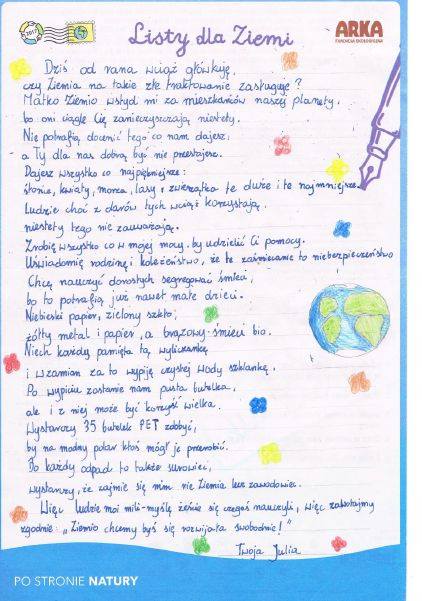 2017
Listy dla Ziemi
ARKA
FUNDACJA EKOLOGICZNA
Dziś od rana wciąż główkuję,
czy Ziemia na takie złe traktowanie zasługuje?
Matko Ziemio wstyd mi za mieszkańców naszej planety,
bo oni ciągle Cię zanieczyszczają niestety.
Nie potrafią docenić tego co nam dajesz,
a Ty dla nas dobrą być nie przestajesz.
Dajesz wszystko co najpiękniejsze:
słońce, kwiaty, morza, lasy i zwierzątka te duże i te najmniejsze.
Ludzie choć z darów tych wciąż korzystają,
niestety tego nie zauważają.
Zrobię wszystko co w mojej mocy, by udzielić Ci pomocy.
Uświadomię rodzinę i koleżeństwo, że te zaśmiecanie to niebezpieczeństwo
Chcę nauczyć dorosłych segregować śmieci,
bo to potrafią już nawet małe dzieci.
Niebieski papier, zielony szkło,
żółty metal i papier, a brązowy śmieci bio.
Niech każdy pamięta tą wyliczankę
i w zamian za to wypiję czystej wody szklankę.
Po wypiciu zostanie nam pusta butelka,
ale i z niej może być korzyść wielka.
Wystarczy 35 butelek PET zdobyć,
by na modny polar ktoś mógł je przerobić.
Bo każdy odpad to także surowiec,
wystarczy, że zajmie się nim nie Ziemia lecz zawodowiec.
Więc ludzie moi mili-myślę żeście się czegoś nauczyli, więc zakrzyknijmy
zgodnie: „Ziemio chcemy byś się rozwijała swobodnie!"
Twoja Julia
PO STRONIE NATURY